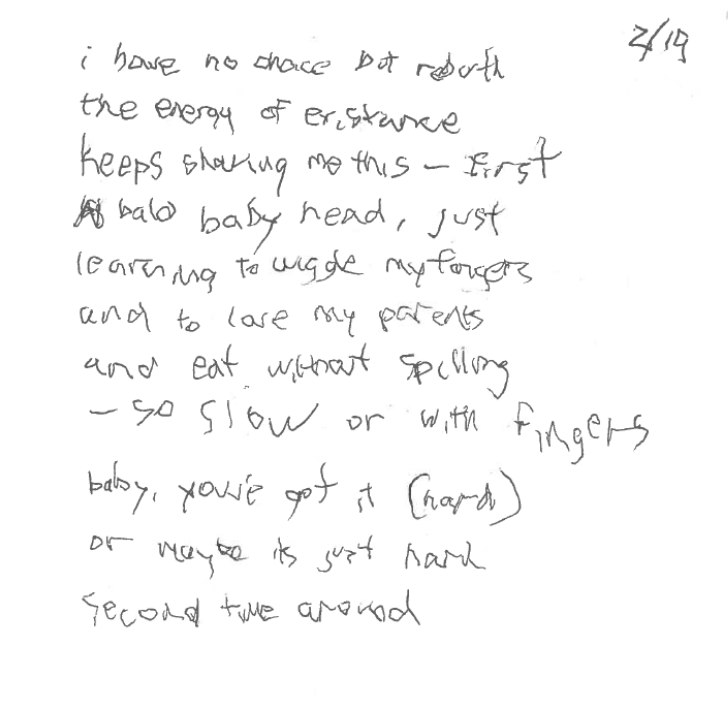 2/19
i have no choice but rebirth
the energy of existance
keeps sharing me this – first
bald baby head, just
learning to wiggle my fingers
and to love my parents
and eat without spilling
– so slow or with fingers
baby, you've got it (hard)
or maybe its just hard
second time around